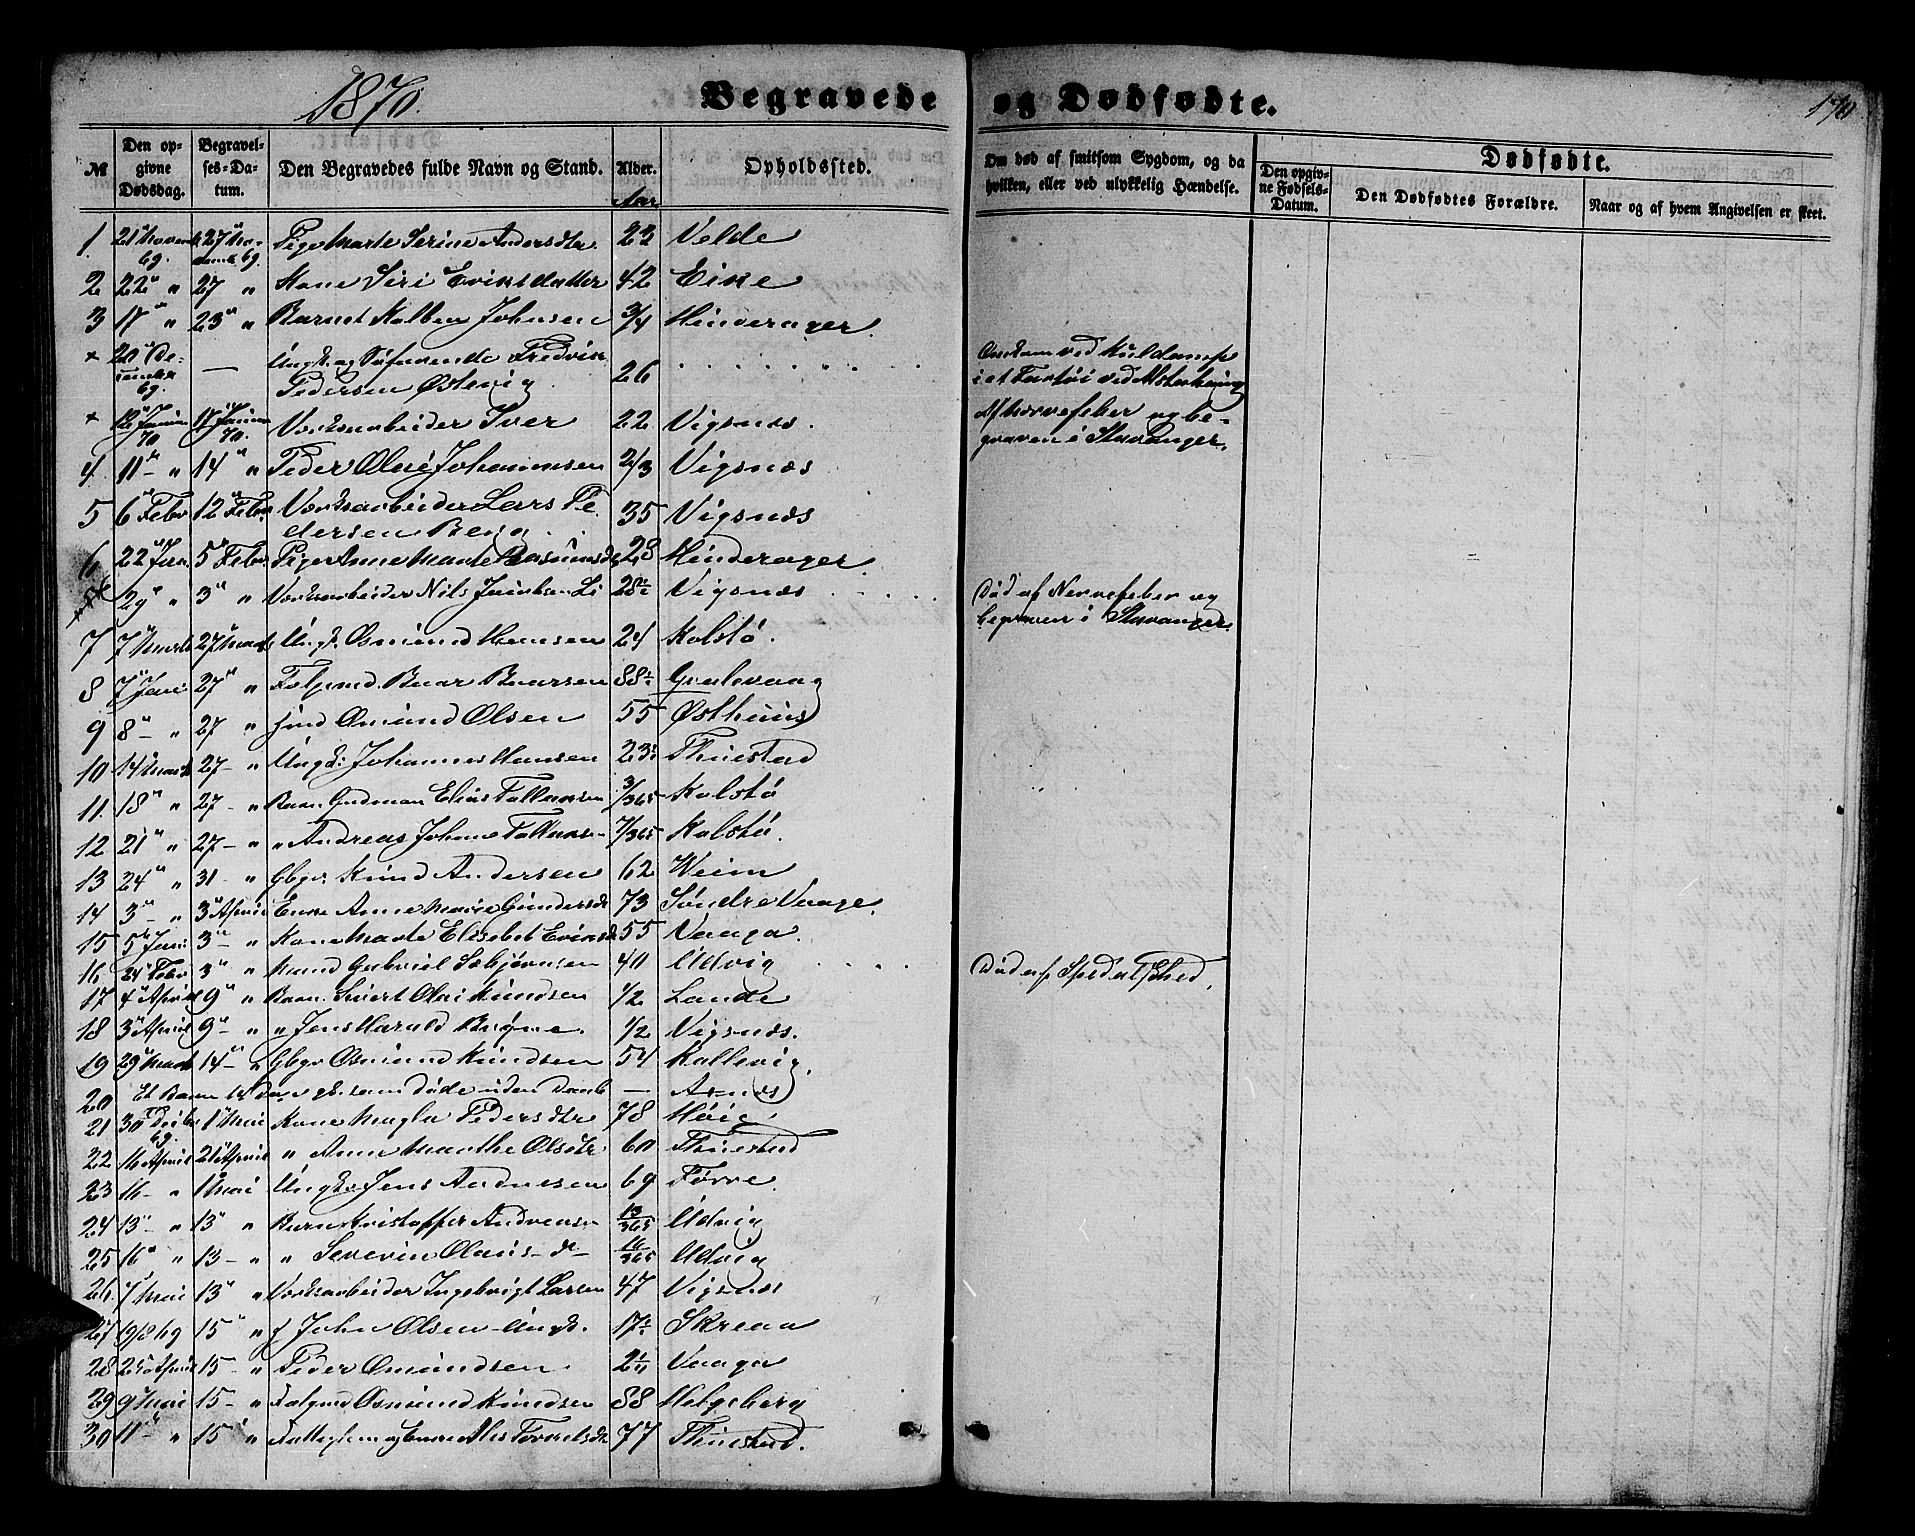 1870.
Begravede og Dødfødte.
170
№
Den opgivne Dødsdag.
Begravelses-Datum.
Den Begravedes fulde Navn og Stand.
Alder.
Aar
Opholdssted.
Om død af smitsom Sygdom, og da hvilken, eller ved ulykkelig Hændelse.
Dødfødte.
Den opgivne Fødsels-Datum.
Den Dødfødtes Forældre.
Naar og af hvem Angivelsen er skeet.
1 21 Novemb 69. 27 69. Pige Marte Serine Andersdtr 22 Velde
2 22 " 27 " Kone Siri Eriksdatter 42 Eike
3 17 " 23 " Barnet Kolben Johnsen 3/4 Hinderager
× 20 December 69. — Ungk. og Søfarende Fredrik Pedersen Østevig 26 . . . . Omkom ved Kuldamp i et Fartøi ved
× 12 Januar 70. 17 Januar 70. Værksarbeider Iver 22 Vigsnæs. Af Nervefeber og begraven i Stavanger.
4 11 " 14 " Peder Olai Johannsen 2/3 Vigsnæs
5 6 Febr 12 Febr. Værksarbeider Lars Pedersen Berg. 35 Vigsnæs
6 22 Jan. 5 Febr. Pige Anne Marte Rasmusdt 28 Hinderager
29 " 3 " Værksarbeider Nils Jacobsen Li 28 Vigsnæs . . . . Død af Nervefeber og begraven i Stavanger.
7 7 Marts 27 Marts Ungk. Osmund Hansen 24 Kolstø.
8 7 Jan 27 " Folgmd. Baar Baarsen 88 Grulevaag
9 8 " 27 " Osmund Olsen 55 Østhuus
10 14 Marts 27 " Ungk: Johannes Hansen 23 Thuestad
11. 18 " 27 " Barn Gudman Elias Tollaksen 3/365 Kolstø
12. 21 " 27 " " Andreas Johan Tollaksen 7/365 Kolstø.
13 24 " 31 " Gbgr. Knud Andersen 62 Weim
14 3 " 3 April Enke Anne Marie Gundersdt 73 Søndre Vaage.
15 5 Jan 3 " Kone Marte Elisebet Eriksd 55 Vaaga.
16 24 Febr 3 " Mand Gabriel Sebjørnsen 40 Udvig . . . . Død af Spedalskhed.
17 4 April 9 " Barn. Sivert Olai Knudsen 1/2 Lande
18 3 April 9 " " Jens Harald Bryne. 1/2 Vigsnæs.
19 29 Marts 14 " Gbgr Osmund Knudsen 54 Kallevig.
20 Et Barn 14 Dage gl. som døde uden Daab — Asnæs
21 30 Decbr 69. 1 Mai Kone Magla Pedersdtr 78 Høie,
22 16 April 21 April " Anne Marthe Olsdtr 60 Thuestad
23 16 " 1 Mai Ungk. Jens Andreasen 69 Førre.
24 13 " 13 " Barn Kristoffer Andreasen 13/365 Udvig
25 16 " 13 " " Severin Olaus — do — 16/365 Udvig
26 7 Mai 13 " Værksarbeider Ingebrigt Larsen 47 Vigsnæs
27 19/8 69 15 " John Olsen Ungk. 17 Skreaa
28 25 April 15 " Peder Osmundsen. 2 Vaaga
29 9 Mai 15 " Folgmd Osmund Knudsen 88 Helgeberg
30 11 " 15 " Fattiglem og Enke 77 Thuestad.